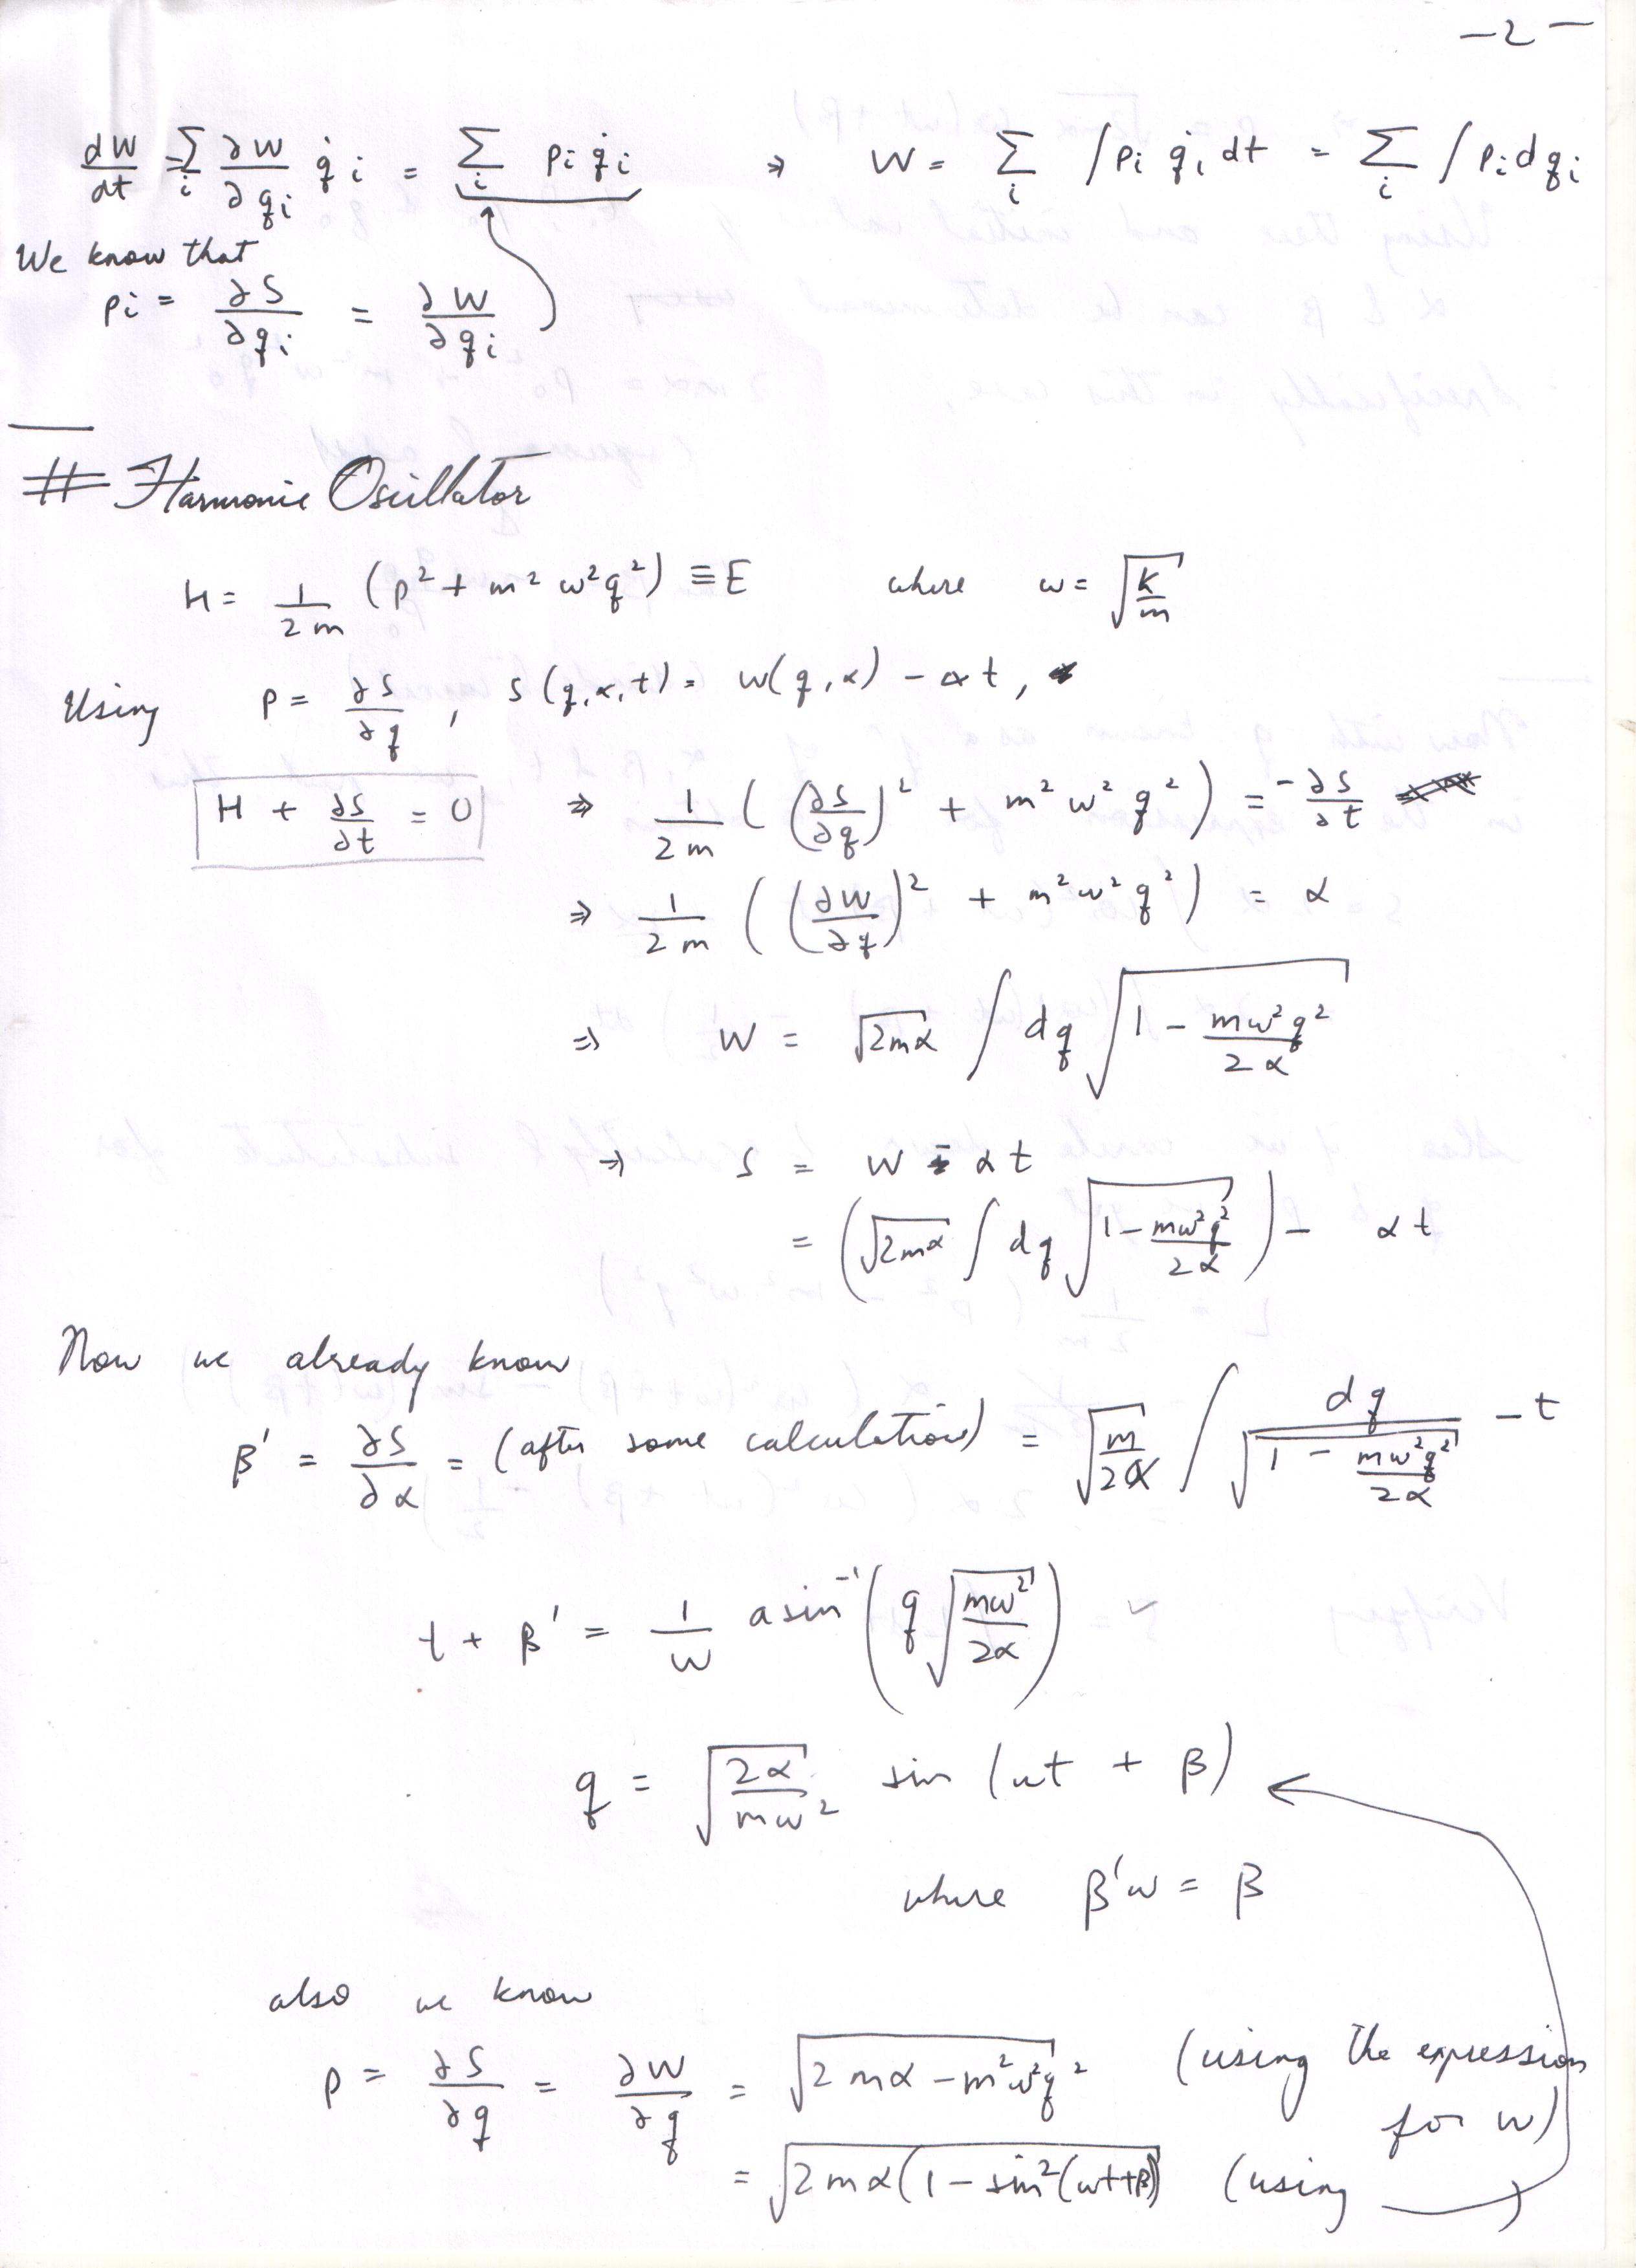 -2-
dW/dt = Σ_i ∂W/∂q_i q̇_i = Σ_i p_i q̇_i ⇒ W = Σ_i ∫p_i q̇_i dt = Σ_i ∫p_i dq_i
We know that
p_i = ∂S/∂q_i = ∂W/∂q_i
# Harmonic Oscillator
H = 1/2m (p² + m² ω² q²) ≡ E where ω = √(k/m)
Using p = ∂S/∂q, S(q,α,t) = W(q,α) - αt,
H + ∂S/∂t = 0 ⇒ 1/2m ((∂S/∂q)² + m² ω² q²) = -∂S/∂t
⇒ 1/2m ((∂W/∂q)² + m² ω² q²) = α
⇒ W = √(2mα) ∫ dq √(1 - mω²q²/2α)
⇒ S = W - αt
= (√(2mα) ∫ dq √(1 - mω²q²/2α)) - αt
Now we already know
β' = ∂S/∂α = (after some calculation) = √(m/2α) ∫ dq/√(1 - mω²q²/2α) - t
t + β' = 1/ω asin⁻¹(q √(mω²/2α))
q = √(2α/mω²) sin(ωt + β)
where β'ω = β
also we know
p = ∂S/∂q = ∂W/∂q = √(2mα - m²ω²q²) (using the expression
for W)
= √(2mα(1 - sin²(ωt+β)) (using )